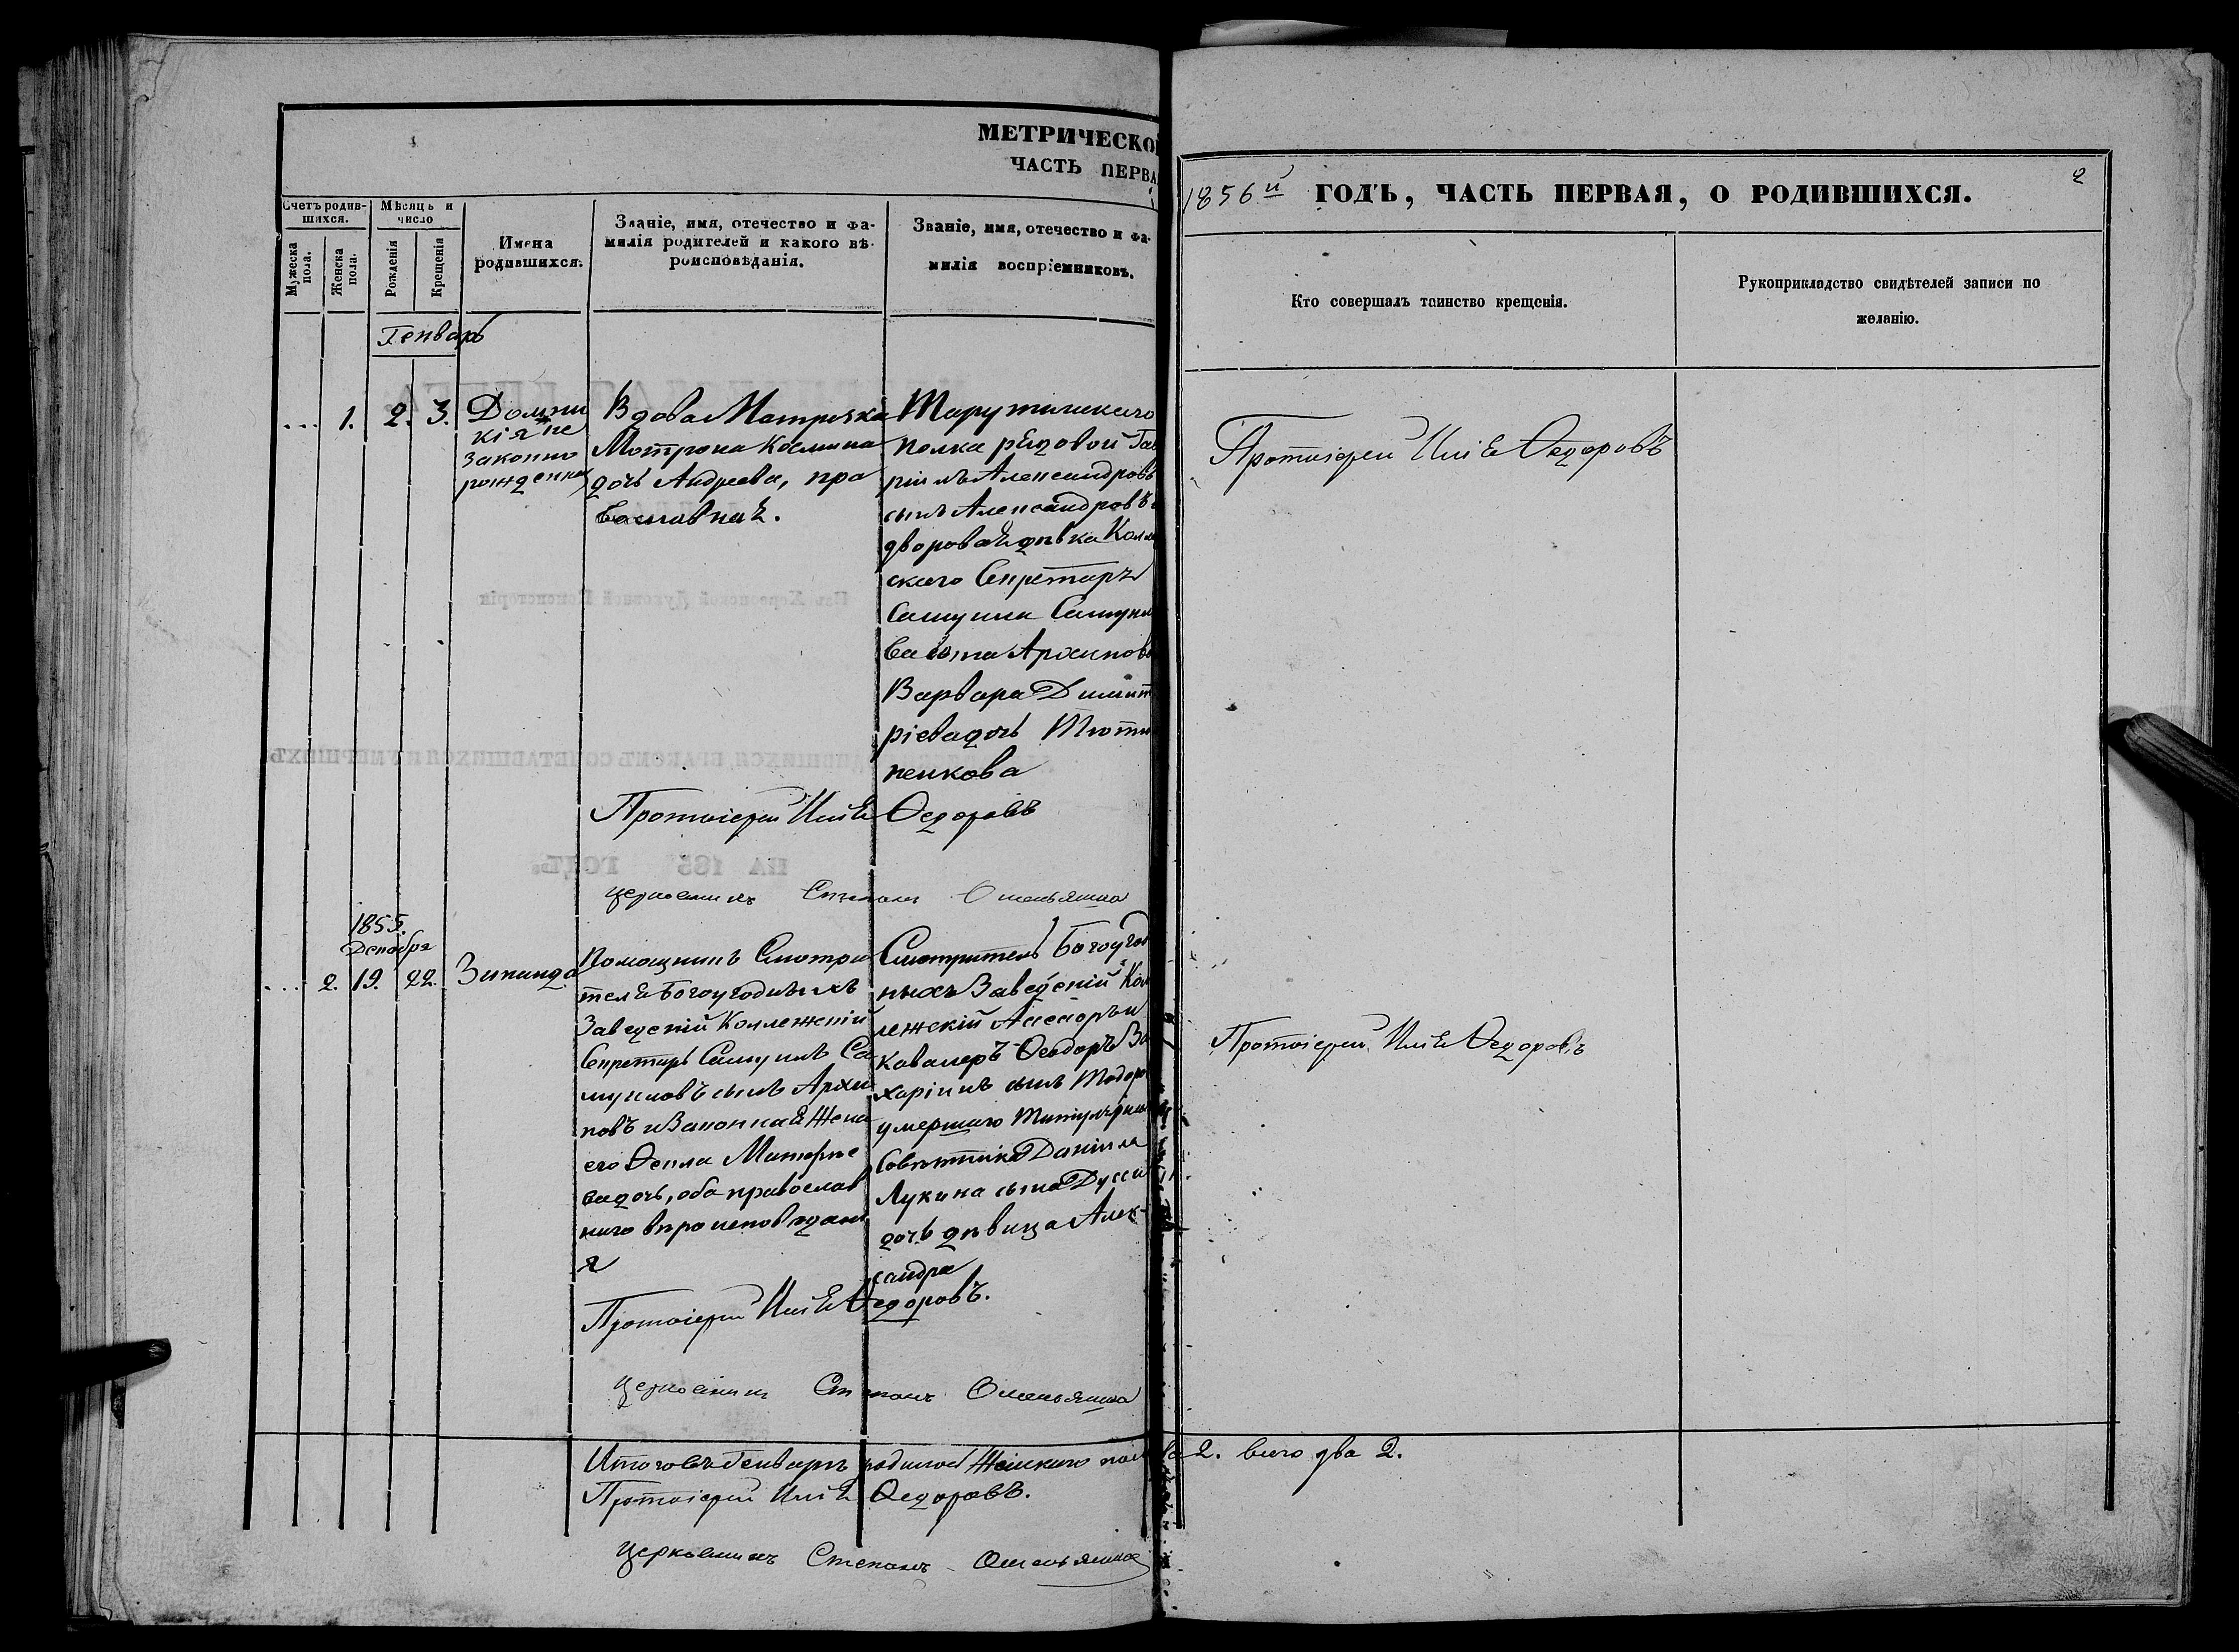 МЕТРИЧЕСКО
ЧАСТЬ ПЕРВА
Счетъ родив-
шихся.
Мѣсяцъ и
число
Мужеска
пола.
Женска
пола.
Рожденія
Крещенія
Имена
родившихся.
Званіе, имя, отечество и фа-
милія родителей и какого вѣ-
роисповѣданія.
Званіе, имя, отечество и фа-
милія воспріемниковъ.
Генварь
... 1. 2. 3.
Домни
кія не
законно
рожденная
Вдова Матроска
Мотрона Космина
дочь Андреева, пра
вославная.
Тарутинскаго
полка рядовой Гав
ріилъ Александровъ
сынъ Александровъ
дворовая дѣвка Колле
скаго Секретаря
Самуила Самуил
ва сына Архипова
Варвара Димит
ріева дочь Тюти
пенкова
Протоіерей Илія Ѳедоровъ
Церковникъ Степанъ
1855.
Декабря
... 2. 19. 22.
Зинаида
Помощникъ Смотри
теля Богоугодныхъ
Заведеній Коллежскій
Секретарь Самуилъ Са
муиловъ сынъ Архи
повъ и Законная Жена
его Ѳекла Матфѣе
ва дочь, оба православ
наго вѣроисповѣдані
я
Смотритель Богоугод
ныхъ Заведеній Кол
лежскій Асесоръ и
Кавалеръ Ѳеодоръ За
харіинъ сынъ Тодор
умершаго Титулярна
Совѣтника Даніила
Лукина сына Дусси
дочь дѣвица Алек-
сандра
Протоіерей Илія Ѳедоровъ.
Церковникъ Степанъ
Итого въ Генварѣ родилось Женскаго пола
Протоіерей Илія Ѳедоровъ.
Церковникъ Степанъ
1856й ГОДЪ, ЧАСТЬ ПЕРВАЯ, О РОДИВШИХСЯ.
2
Кто совершалъ таинство крещенія.
Рукоприкладство свидѣтелей записи по
желанію.
Протоіерей Илія Ѳедоровъ
Протоіерей Илія Ѳедоровъ
2. всего два 2.